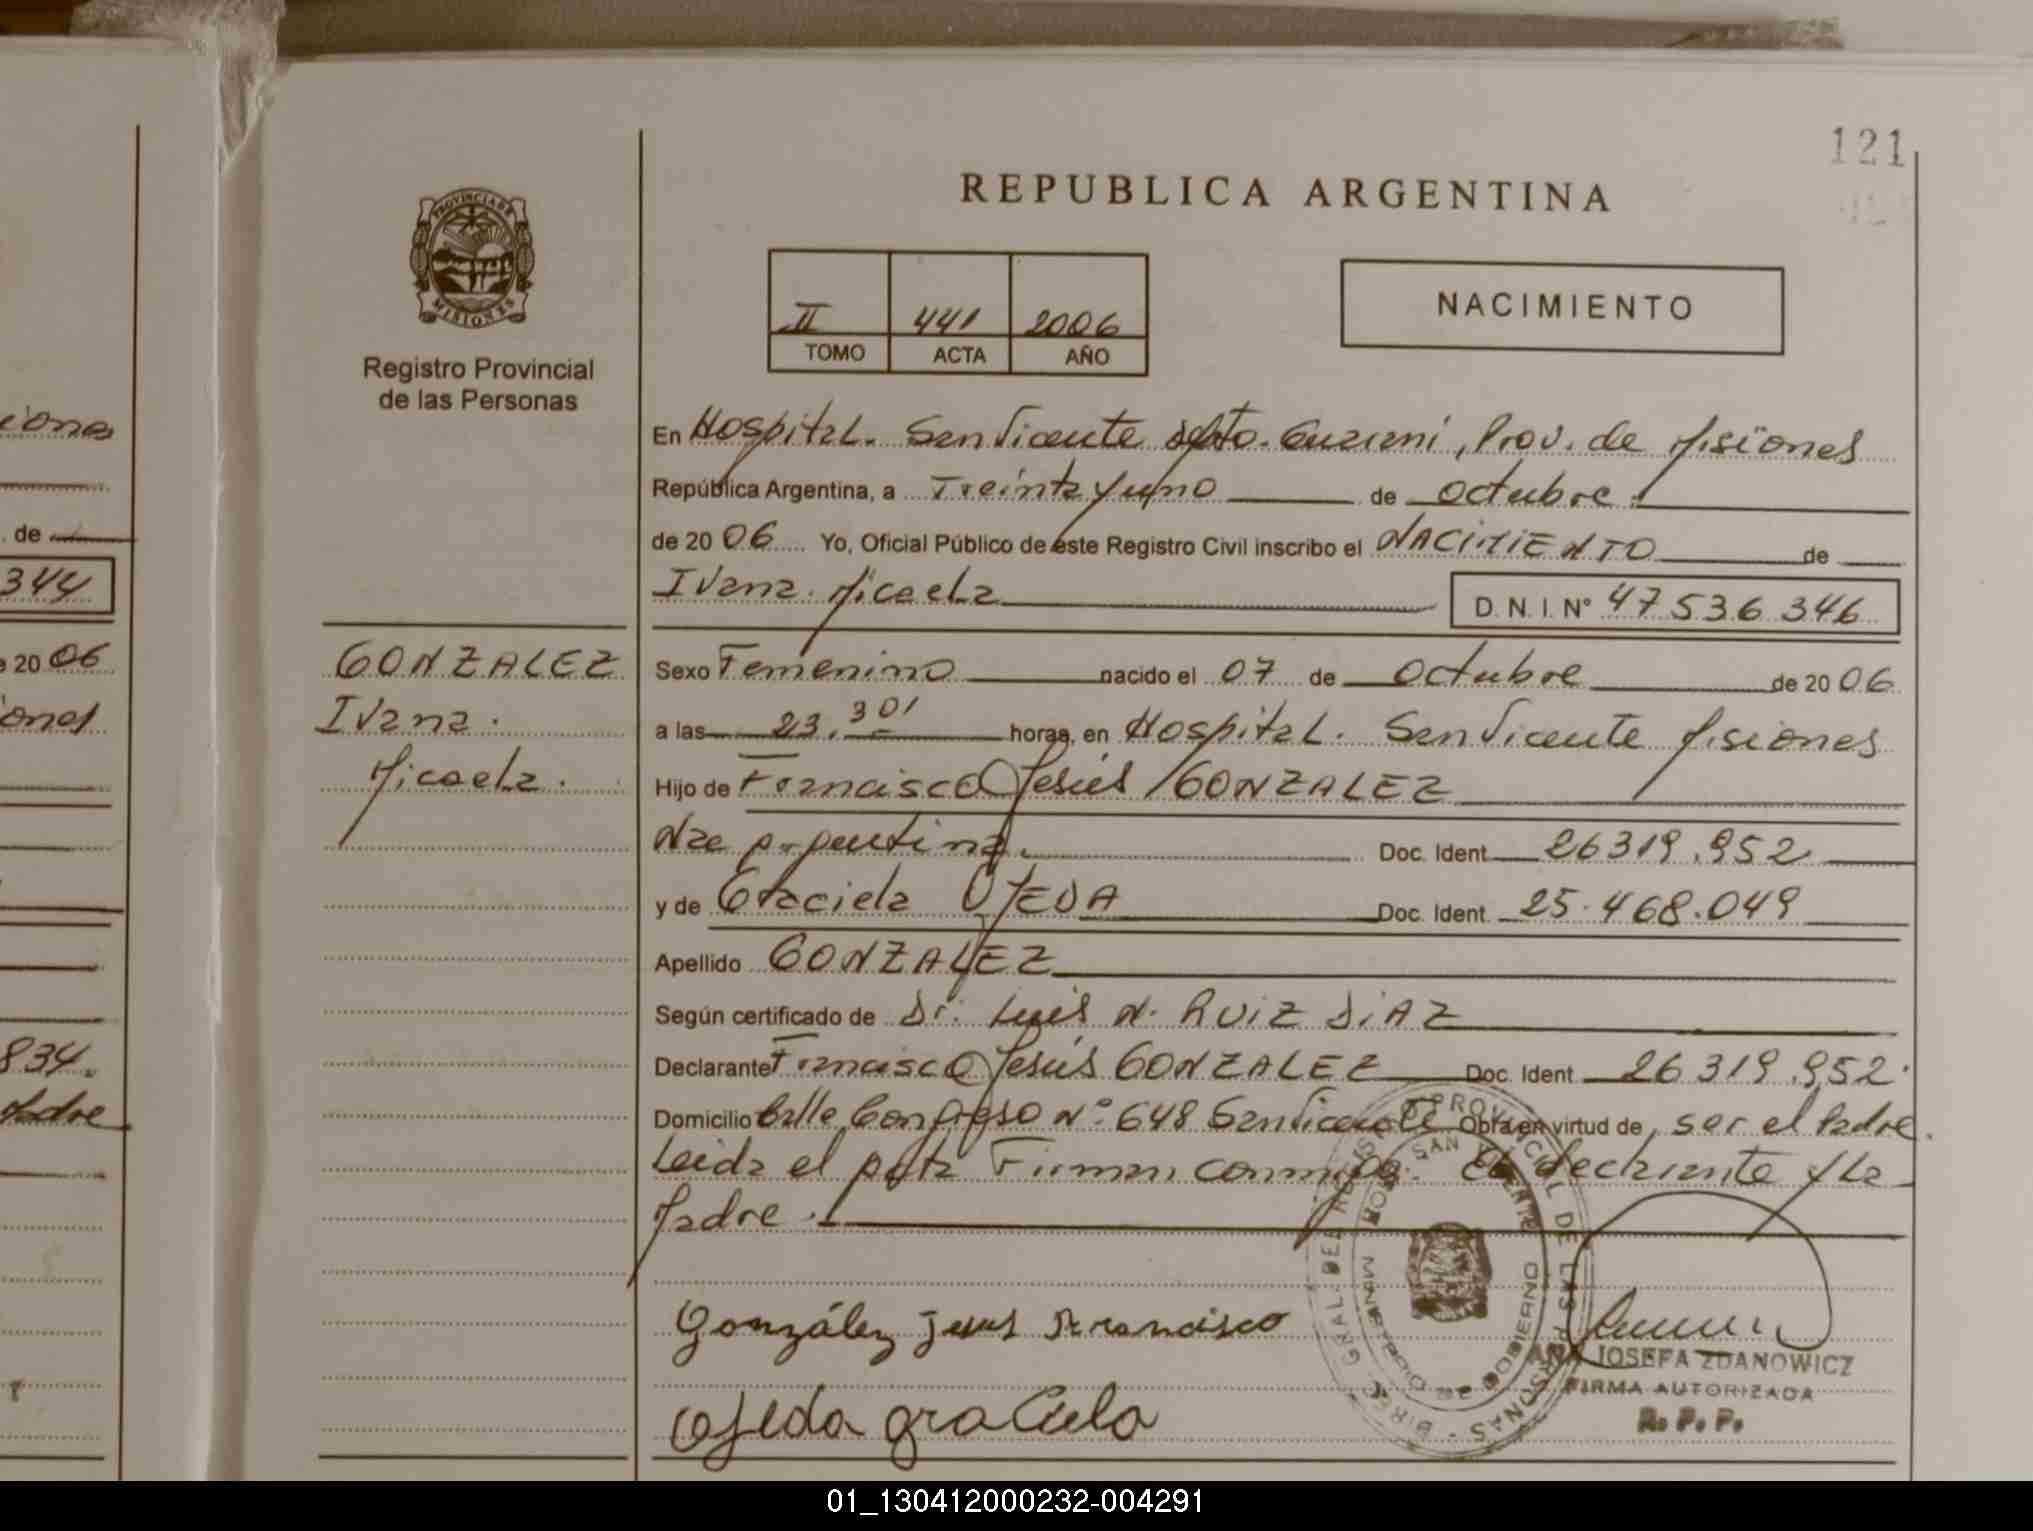 121
REPUBLICA ARGENTINA
PROVINCIA DE
MISIONES
Registro Provincial
de las Personas
II 441 2006
TOMO ACTA AÑO
NACIMIENTO
En Hospital. San Vicente dpto. Guarani, Prov. de Misiones
República Argentina, a Treinta y uno de octubre.
de 2006 Yo, Oficial Público de este Registro Civil inscribo el NACIMIENTO de
Ivana. Micaela D. N. I. N° 47.536.346
GONZALEZ
Ivana.
Micaela.
Sexo Femenino nacido el 07 de Octubre de 2006
a las 23.30' horas, en Hospital. San Vicente Misiones
Hijo de Francisco Jesús GONZALEZ
Nac Argentina. Doc. Ident. 26319.952
y de Graciela OJEDA Doc. Ident. 25.468.049
Apellido GONZALEZ
Según certificado de Dr. Luis N. RUIZ DIAZ
Declarante Francisco Jesús GONZALEZ Doc. Ident. 26319.952.
Domicilio Calle Congreso N° 648 San Vicente Obra en virtud de, ser el Padre.
Leida el acta Firman conmigo. El declarante y la
Madre.
González Jesus Francisco
Ojeda graciela
ANA JOSEFA ZDANOWICZ
FIRMA AUTORIZADA
R. P. P.
iones
de
344
e 2006
ones
834.
Padre
01_130412000232-004291